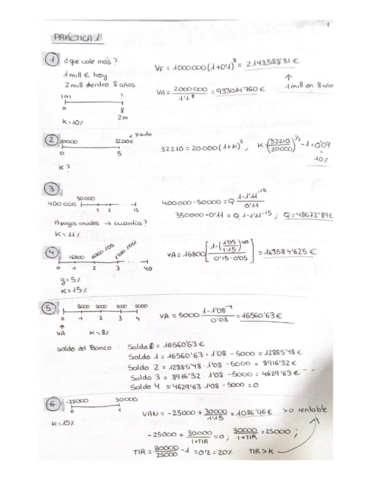 1
PRÁCTICA 1
1 ¿que vale más?
1 mill € hoy
2 mill dentro 8 años
1m ?
0 8
2m
K=10%
VF = 1000000 (1+0'1)^8 = 2143588'81 €
1 mill en 8 años
VA = 2000000 / 1'1^8 = 933014'760 €
2 20000 32210€
0 5
K?
32210 = 20000 (1+K)^5 , K = (32210/20000)^1/5 - 1 = 0'09
10%
3
50000
400000
1 2 15
15 pagos anuales → cuantía?
K = 11%
400000 - 50000 = Q (1-1'11^-15)/0'11
350000 · 0'11 = Q 1-1'11^-15 ; Q = 48672'89€
4 16800 16800·1'05
0 1 2 3 40
g = 5%
K = 15%
VA = 16800 [1-(1'05/1'15)^40 / 0'15-0'05] = 163584'625 €
5 5000 5000 5000 5000
0 1 2 3 4
VA K = 8%
VA = 5000 (1-1'08^-4)/0'08 = 16560'63 €
saldo del Banco:
Saldo 0 = 16560'63 €
Saldo 1 = 16560'63 · 1'08 - 5000 = 12885'48 €
Saldo 2 = 12885'48 · 1'08 - 5000 = 8916'32 €
Saldo 3 = 8916'32 · 1'08 - 5000 = 4629'63 €
Saldo 4 = 4629'63 · 1'08 - 5000 = 0
6 -25000 30000
0 1
K=15%
VAN = -25000 + 30000/1'15 = 1086'96 € >0 rentable
-25000 + 30000/1+TIR = 0 ; 30000/1+TIR = 25000 ;
TIR = 30000/25000 - 1 = 0'2 = 20% TIR > K